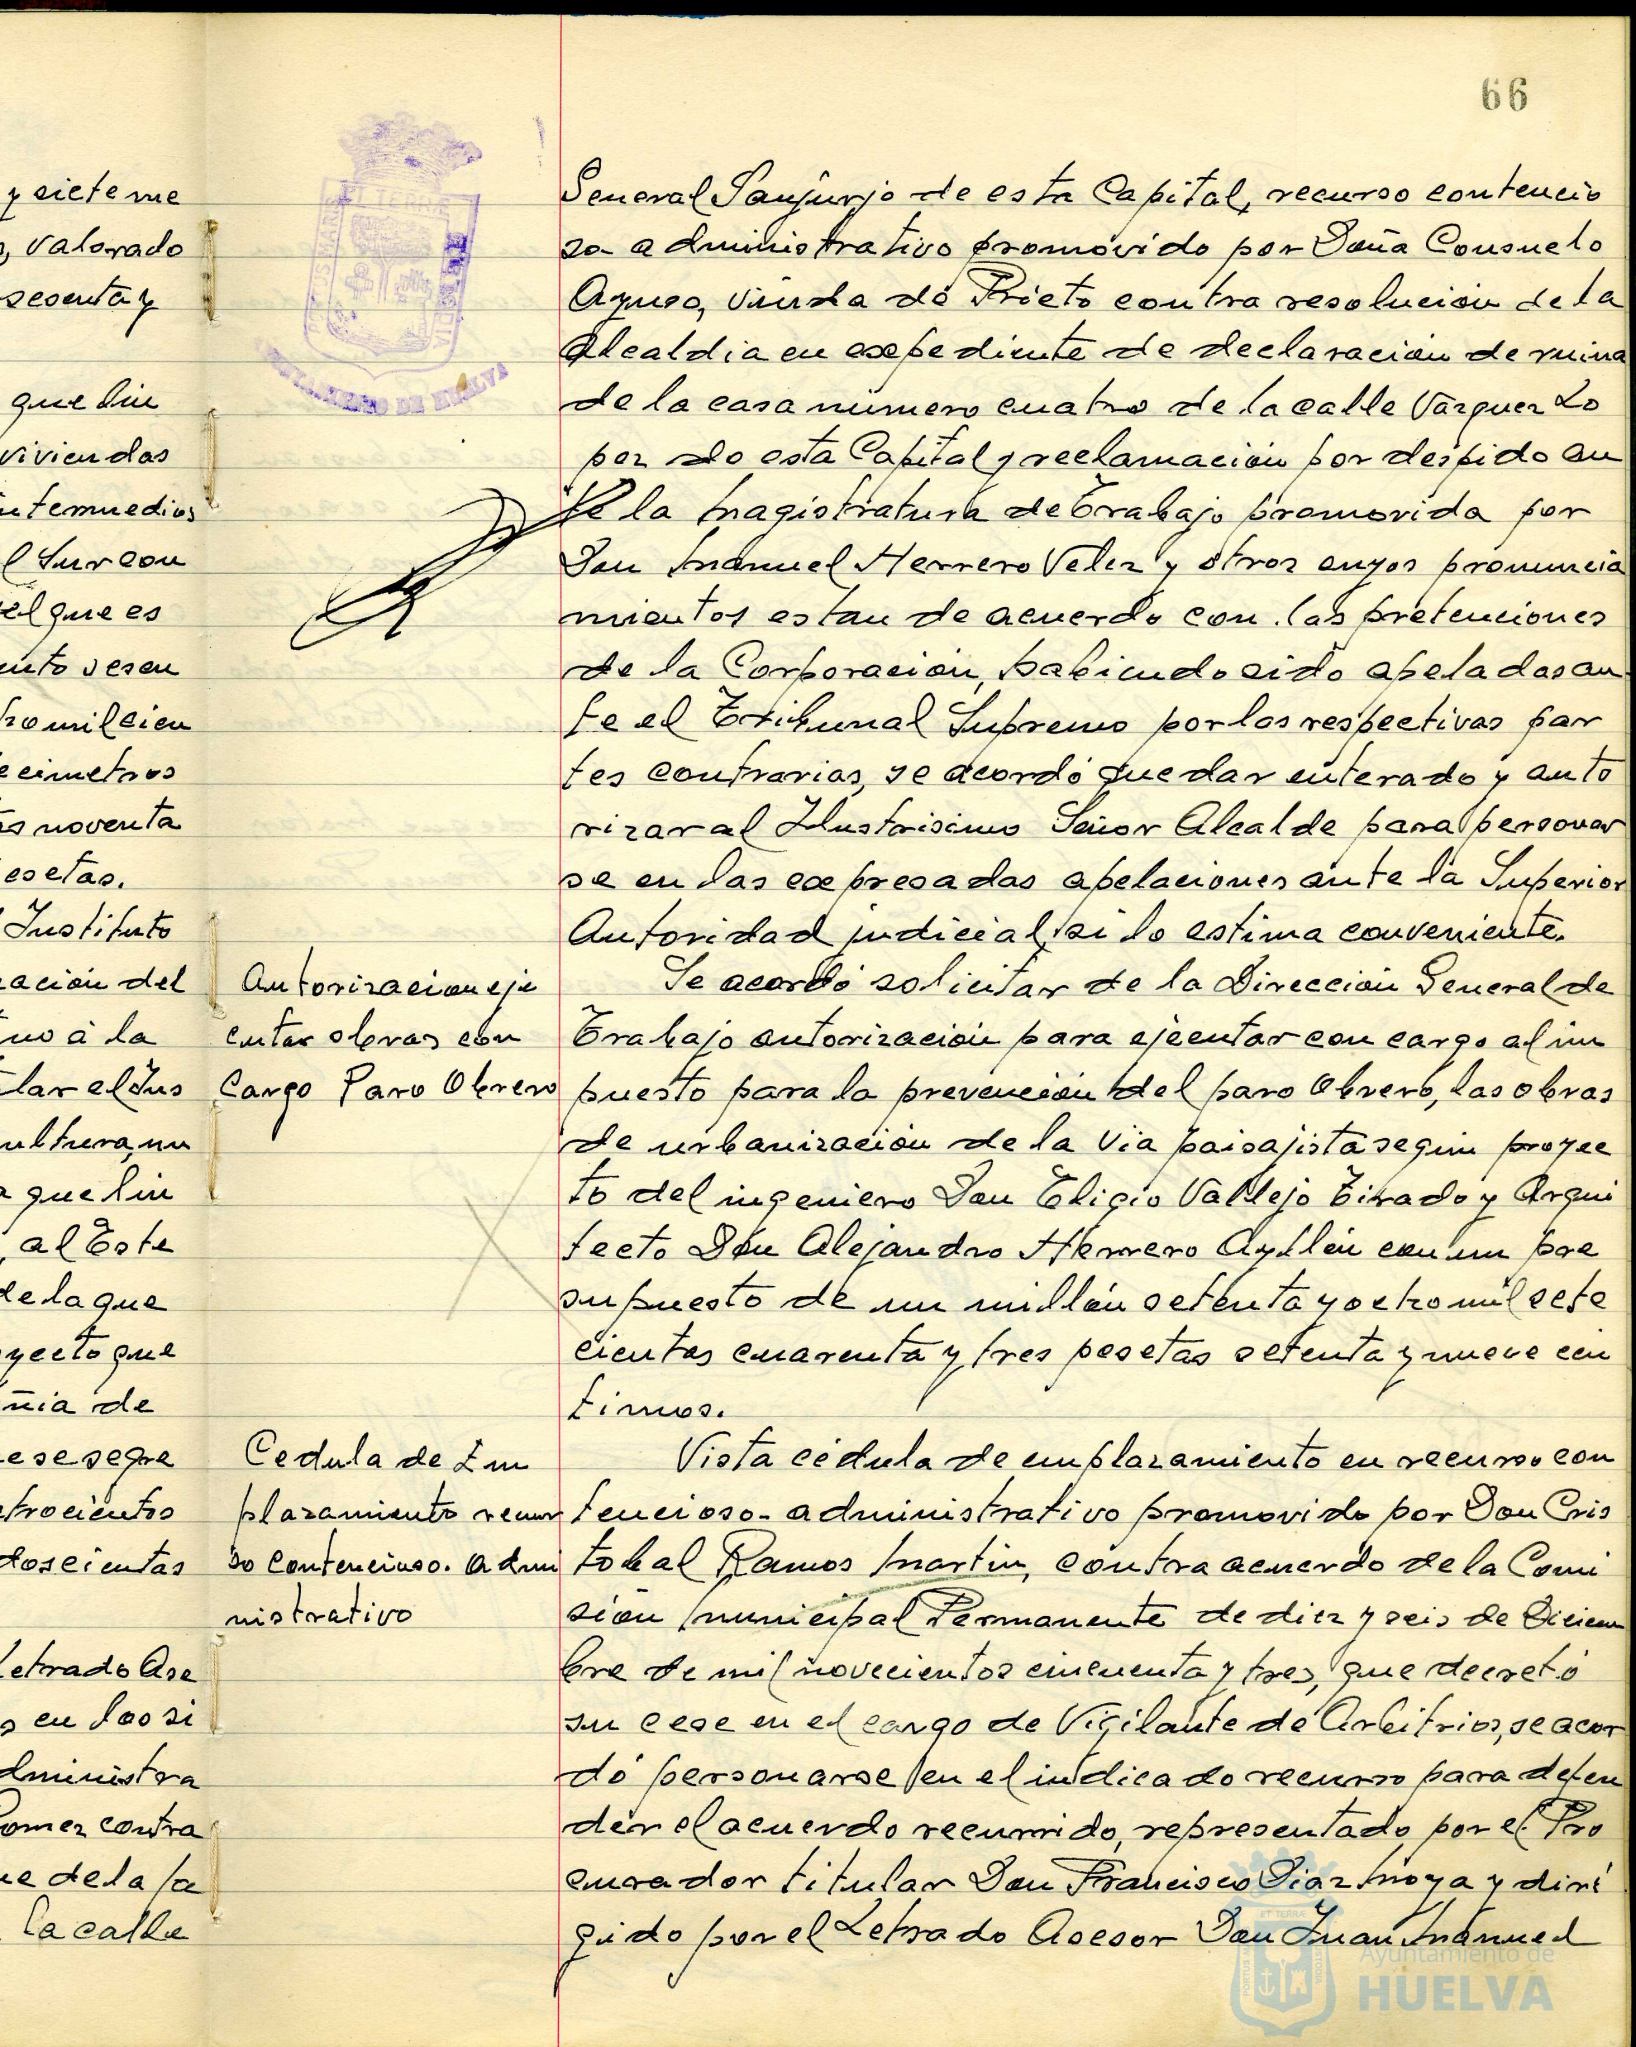 66
y siete me
s, valorado
sesenta y
que lin
viviendas
intermedios
l Sur con
el que es
ento sesen
ho mil cien
ecimetros
as noventa
esetas.
Instituto
ación del
no á la
lar el Ins
ultura, un
a que lin
, al Este
de la que
yecto que
ñia de
e se segre
trocientos
doscientas
Letrado Ase
s en los si
dministra
Gomez contra
ue de la fa
la calle
ET TERRÆ
AYUNTAMIENTO DE HUELVA
General Sanjurjo de esta Capital, recurso contencio
so administrativo promovido por Doña Consuelo
Ayuso, viuda de Prieto contra resolución de la
Alcaldia en expediente de declaración de ruina
de la casa número cuatro de la calle Vázquez Lo
pez de esta Capital y reclamación por despido an
te la Magistratura de Trabajo promovida por
Don Manuel Herrero Velez y otros cuyos pronuncia
mientos estan de acuerdo con las pretenciones
de la Corporación, habiendo sido apeladas an
te el Tribunal Supremo por los respectivas par
tes contrarias, se acordó quedar enterado y auto
rizar al Ilustrisimo Señor Alcalde para personar
se en las expresadas apelaciones ante la Superior
Autoridad judicial, si lo estima conveniente.
Autorizacion eje
cutar obras con
Cargo Paro Obrero
Se acordó solicitar de la Dirección General de
Trabajo autorización para ejecutar con cargo al im
puesto para la prevención del paro Obrero, las obras
de urbanización de la Via paisajista según proyec
to del ingeniero Don Eligio Vallejo Tirado y Arqui
tecto Don Alejandro Herrero Ayllón con un pre
supuesto de un millón setenta y ocho mil sete
cientas cuarenta y tres pesetas setenta y nueve cén
timos.
Cedula de Em
plazamiento recur
so contencioso. admi
nistrativo
Vista cédula de emplazamiento en recurso con
tencioso-administrativo promovido por Don Cris
tobal Ramos Martin, contra acuerdo de la Comi
sión municipal Permanente de diez y seis de Diciem
bre de mil novecientos cincuenta y tres, que decretó
su cese en el cargo de Vigilante de Arbitrios, se acor
dó personarse en el indicado recurso para defen
der el acuerdo recurrido, representado por el Pro
curador titular Don Francisco Diaz Moya y diri
gido por el Letrado Asesor Don Juan Manuel
Ayuntamiento de
HUELVA